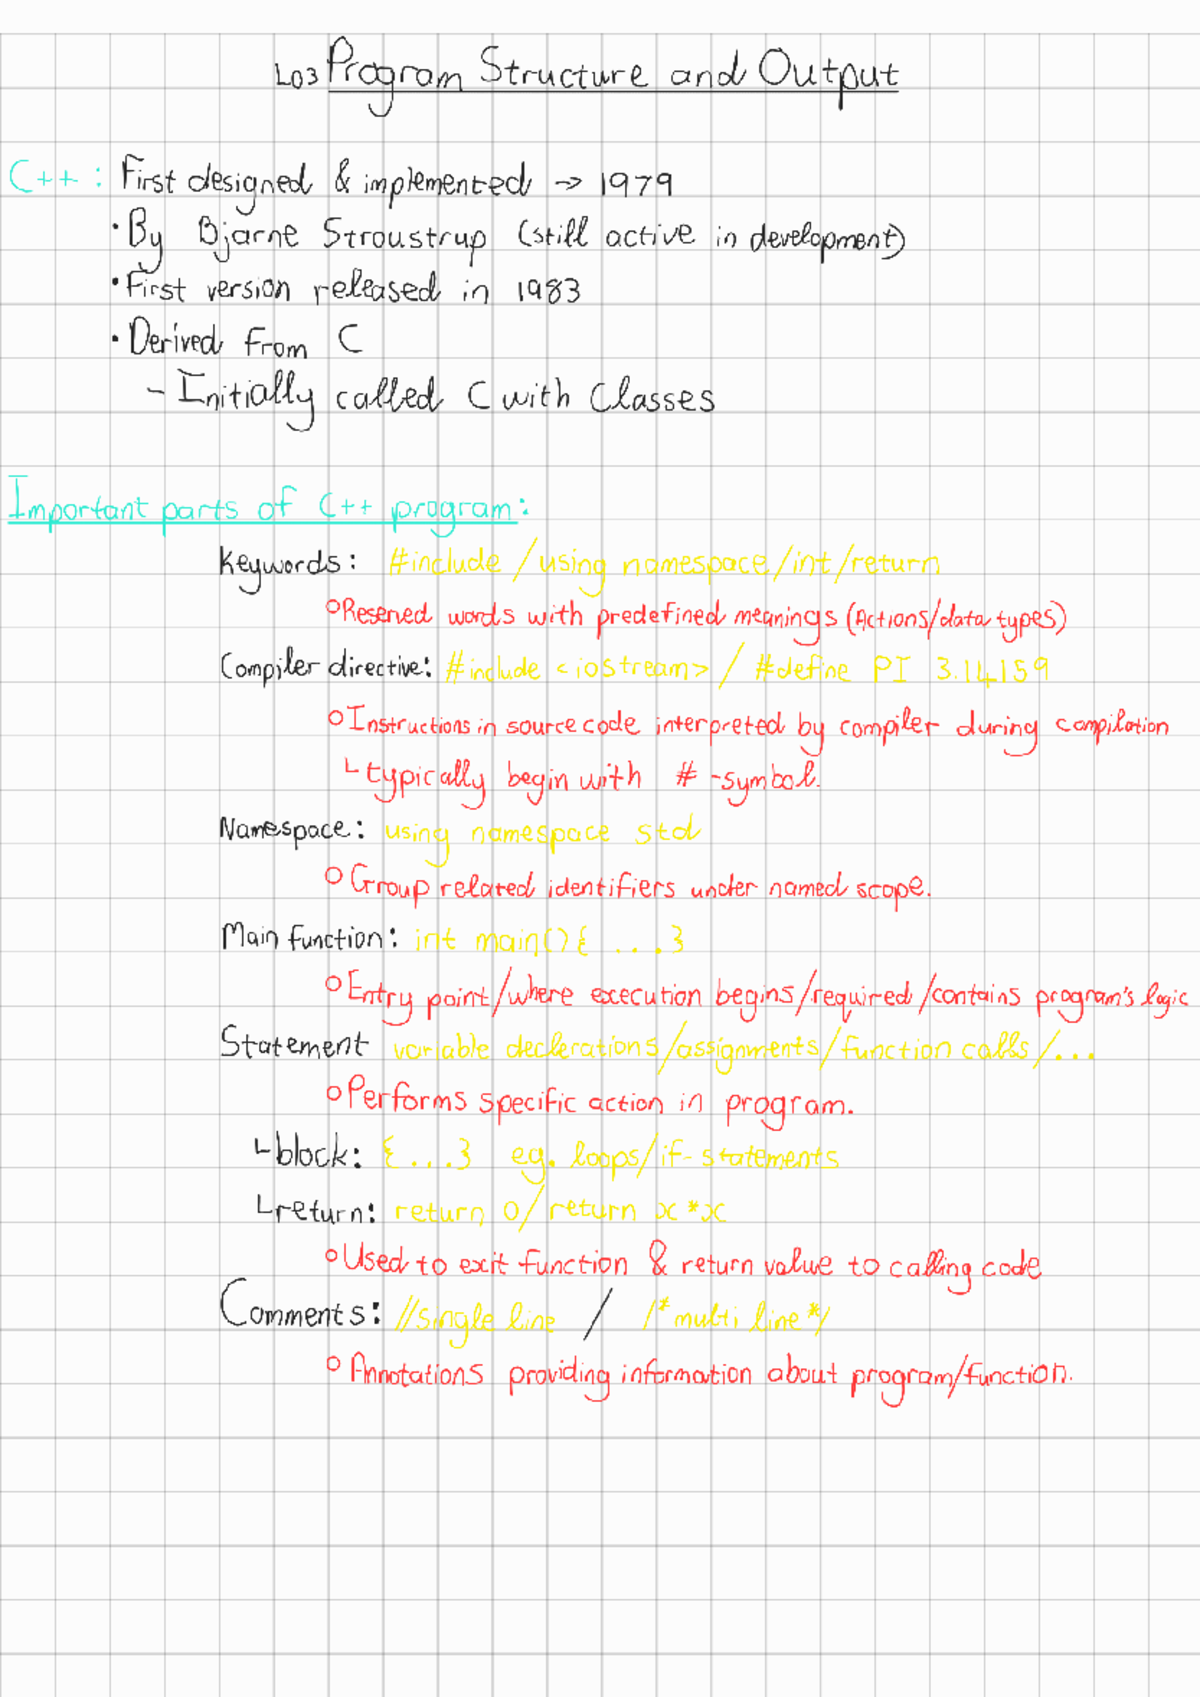 L03 Program Structure and Output
C++ : First designed & implemented → 1979
• By Bjarne Stroustrup (still active in development)
• First version released in 1983
• Derived from C
- Initially called C with Classes
Important parts of C++ program:
Keywords: #include / using namespace / int / return
○ Reserved words with predefined meanings (Actions/data types)
Compiler directive: #include <iostream> / #define PI 3.14159
○ Instructions in source code interpreted by compiler during compilation
└ typically begin with # -symbol.
Namespace: using namespace std
○ Group related identifiers under named scope.
Main function: int main() { ....}
○ Entry point/where execution begins/required/contains program's logic
Statement variable declerations/assignments/function calls/...
○ Performs specific action in program.
└ block: {...} eg. loops/if-statements
└ return: return 0/return x*x
○ Used to exit function & return value to calling code
Comments: //single line / /*multi line*/
○ Annotations providing information about program/function.